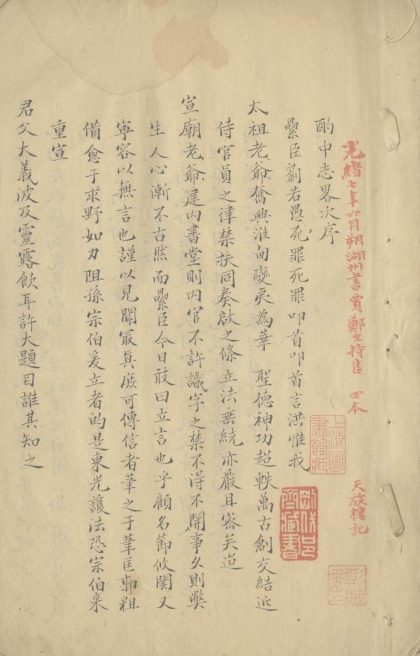 光緒七年六月朔湖州書賈鄭生持售 四本
天放樓記
酌中志畧次序
纍臣劉若愚死罪死罪叩首叩首言洪惟我
太祖老爺奮興淮甸變夷為華 聖德神功超軼萬古創交結近
侍官員之律禁扶同奏啟之條立法垂統亦嚴且密矣迨
宣廟老爺建内書堂則内官不許識字之禁不得不開事久則獘
生人心漸不古然而纍臣今日敢曰立言也乎顧名節攸関又
寧容以無言也謹以見聞最真庶可傳信者筆之于筆匡郭粗
備愈于求野如刃阻孫宗伯爰立者的是東光護法恐宗伯来
重宣
君父大義波及靈露飲耳許大題目誰其知之